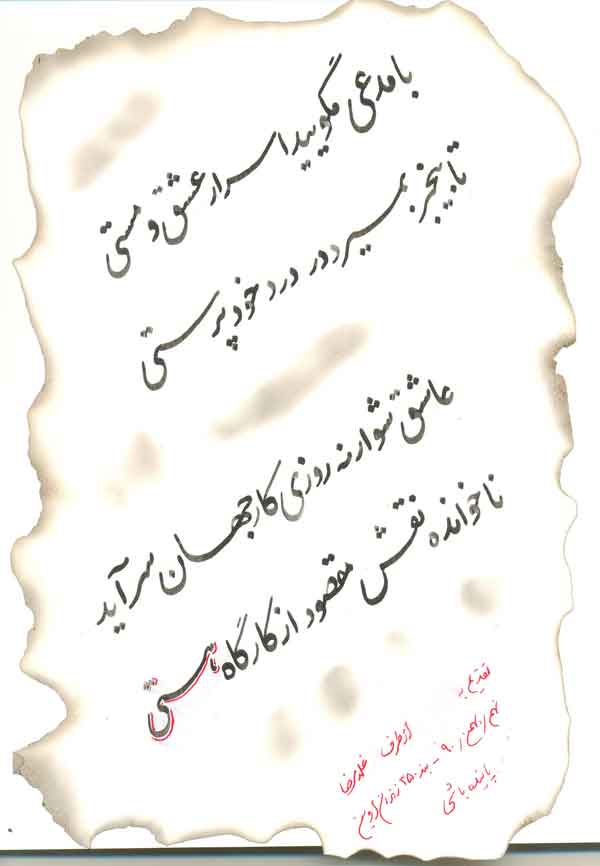 با مدعی مگویید اسرار عشق و مستی
تا بیخبر بمیرد در درد خود پرستی
عاشق شو ارنه روزی کار جهان سرآید
ناخوانده نقش مقصود از کارگاه هستی
تقدیم به
از طرف غلامرضا
پاینده باشی